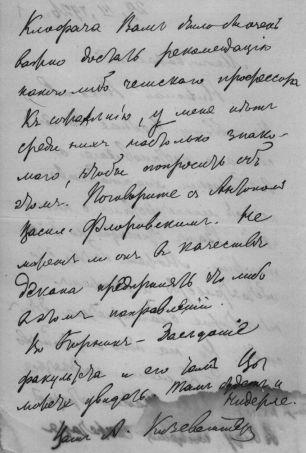 Клофача Вамъ было бы очень
важно достать рекомендацію
какого либо чешскаго профессора
Къ сожалѣнію, у меня нѣтъ
среди нихъ настолько знако-
маго, чтобы попросить объ
этомъ. Поговорите съ Антоніемъ
Васил. Флоровскимъ. Не
можетъ ли онъ въ качествѣ
декана предпринять что либо
въ этомъ направленіи.
Во вторникъ засѣданіе
факультета и его тамъ Вы
можете увидать. Тамъ будетъ и
Нидерле.
Вашъ А. Кизеветтеръ